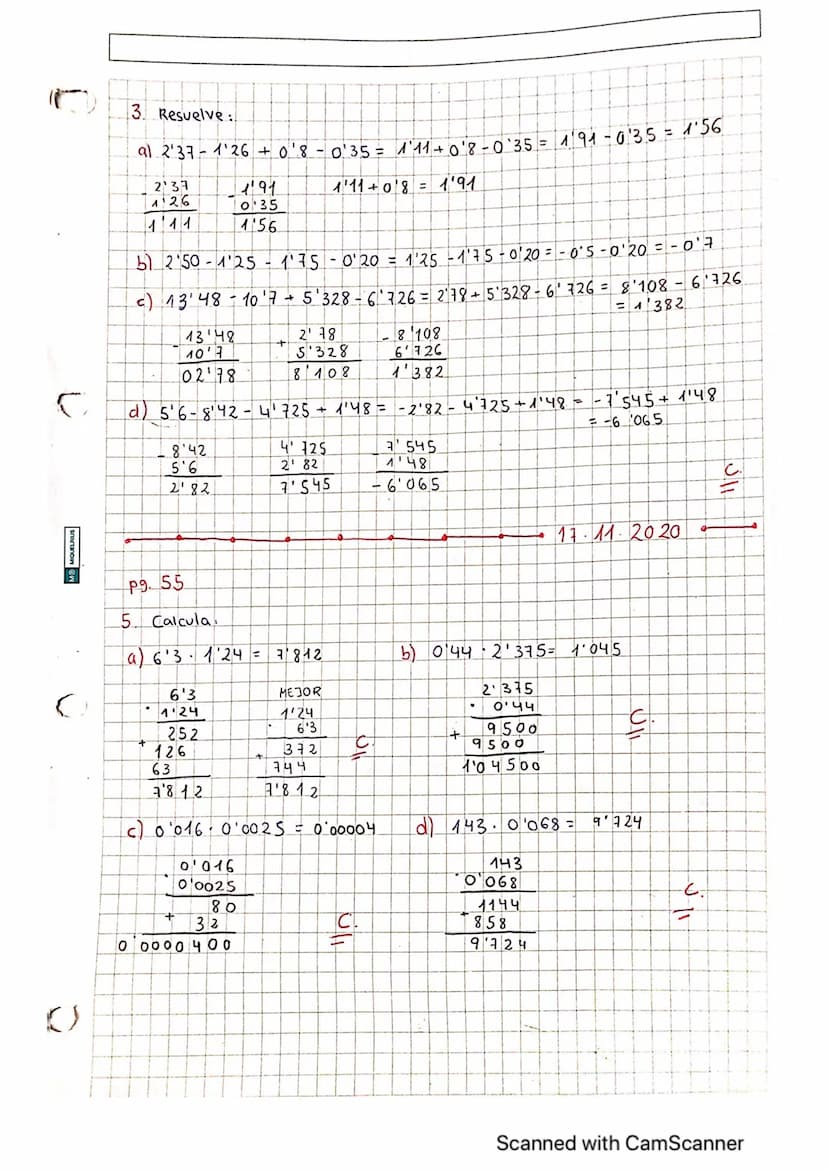 3. Resuelve:
a) 2'37 - 1'26 + 0'8 - 0'35 = 1'11 + 0'8 - 0'35 = 1'91 - 0'35 = 1'56
- 2'37 - 1'91 1'11 + 0'8 = 1'91
1'26 0'35
1'11 1'56
b) 2'50 - 1'25 - 1'75 - 0'20 = 1'25 - 1'75 - 0'20 = - 0'5 - 0'20 = - 0'7
c) 13'48 - 10'7 + 5'328 - 6'726 = 2'78 + 5'328 - 6'726 = 8'108 - 6'726
= 1'382
- 13'48 + 2'78 - 8'108
10'7 5'328 6'726
02'78 8'108 1'382
d) 5'6 - 8'42 - 4'725 + 1'48 = -2'82 - 4'725 + 1'48 = -7'545 + 1'48
= -6'065
- 8'42 4'725 - 7'545
5'6 2'82 1'48
2'82 7'545 - 6'065
C.
17.11.2020
MIQUELRIUS
pg. 55
5. Calcula:
a) 6'3 · 1'24 = 7'812 b) 0'44 · 2'375 = 1'045
6'3 MEJOR 2'375
· 1'24 1'24 · 0'44
252 · 6'3 + 9500
+ 126 + 372 9500
63 744 1'04500
7'812 7'812
C. C.
c) 0'016 · 0'0025 = 0'00004 d) 143 · 0'068 = 9'724
0'016 143
· 0'0025 · 0'068
80 1144
+ 32 + 858
0'0000400 9'724
C. C.
Scanned with CamScanner